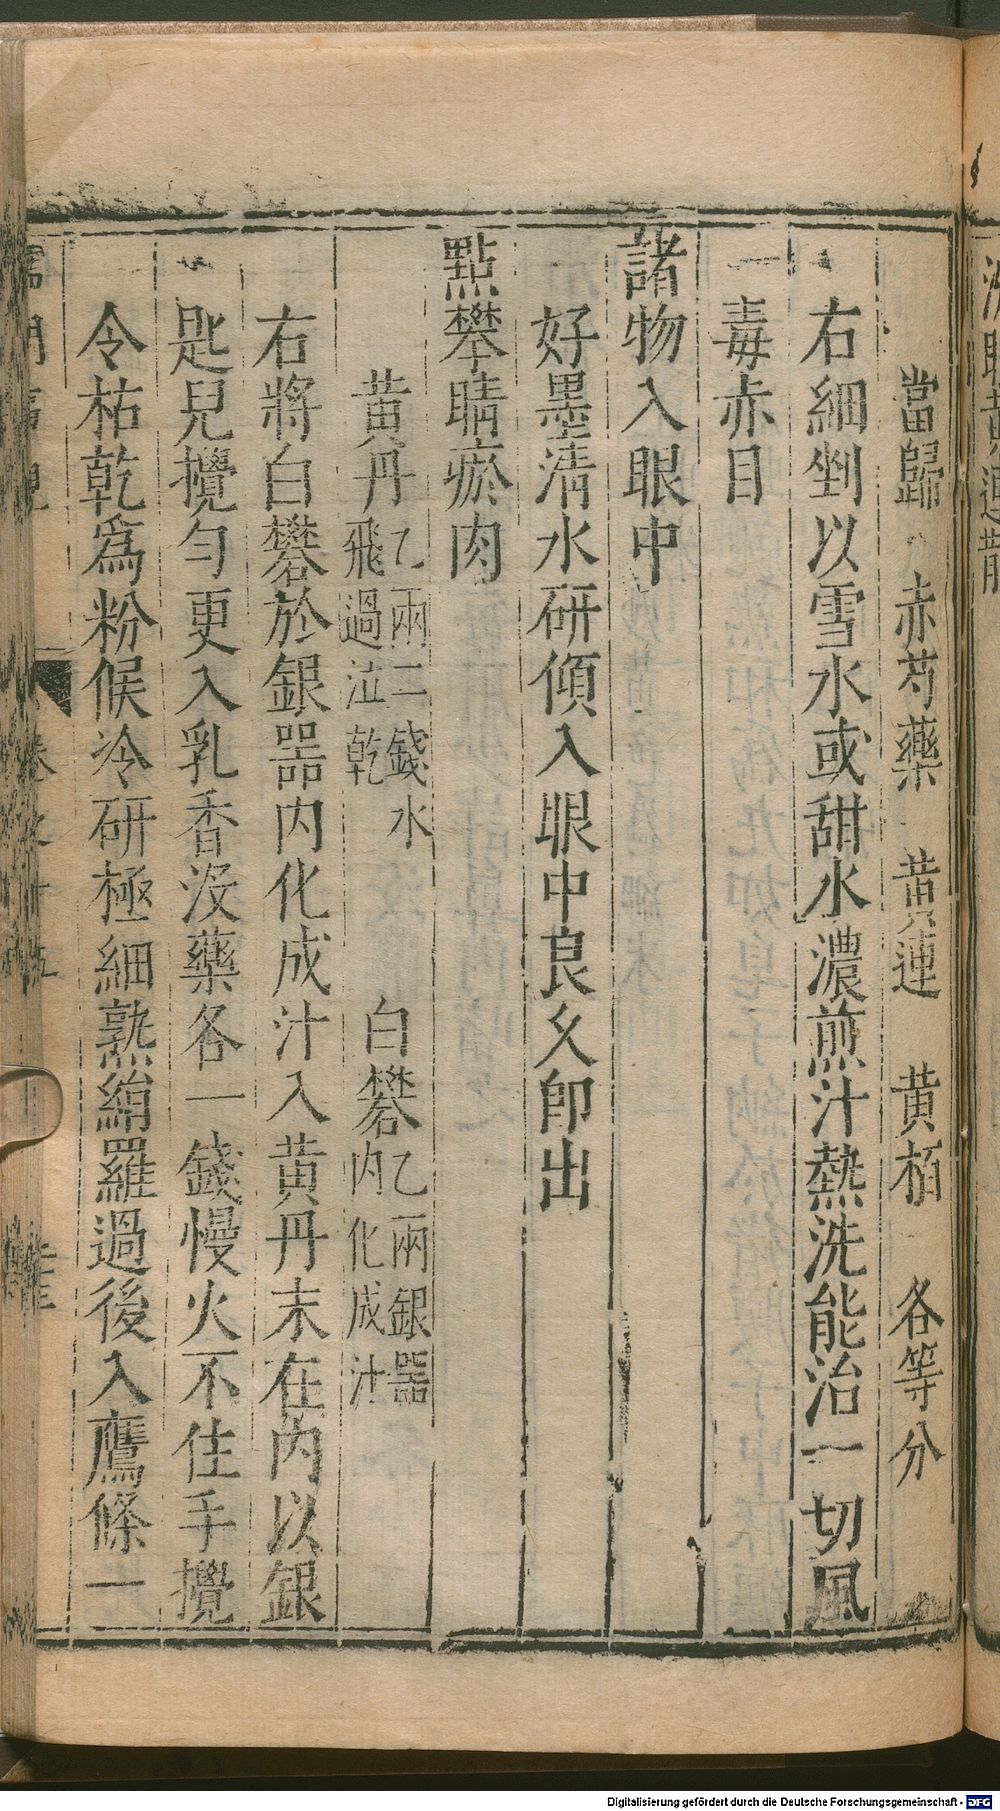 當歸 赤芍藥 黄連 黄栢 各等分
右細剉以雪水或甜水濃煎汁熱洗能治一切風
毒赤目
諸物入眼中
好墨清水研傾入眼中良久卽出
點攀睛瘀肉
黄丹 乙兩二錢水飛過泣乾 白礬 乙兩銀器内化成汁
右將白礬於銀器内化成汁入黄丹末在内以銀
匙兒攪勻更入乳香沒藥各一錢慢火不住手攪
令枯乾爲粉候冷研極細熟絹羅過後入鷹條一
Digitalisierung gefördert durch die Deutsche Forschungsgemeinschaft - DFG